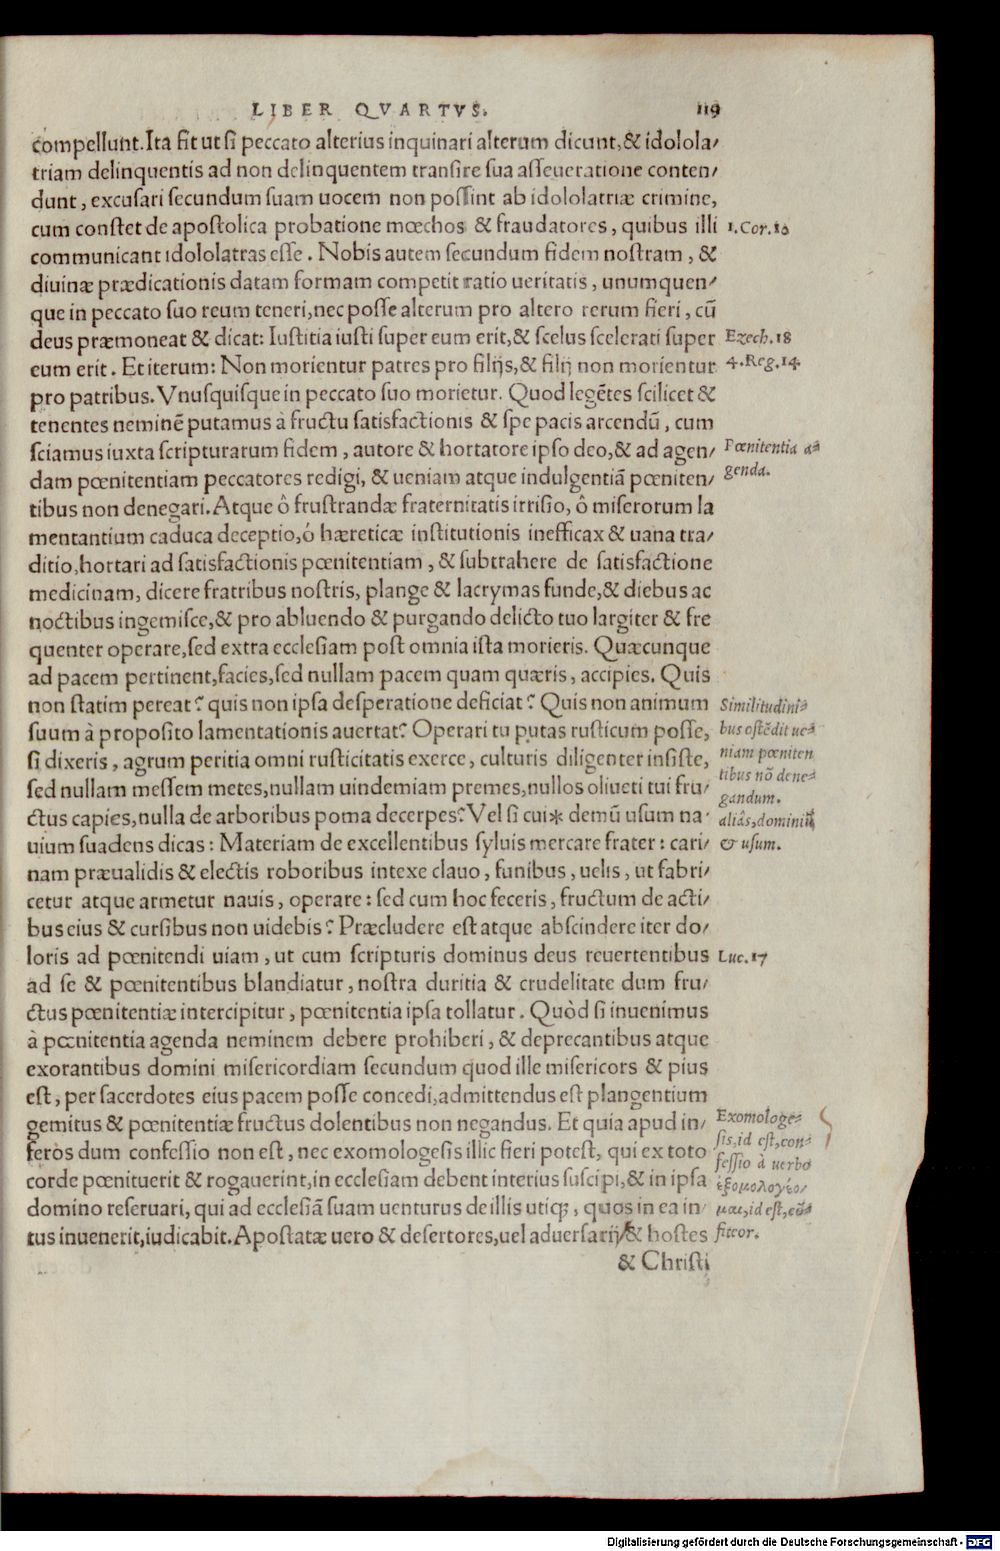 LIBER QVARTVS. 119
compellunt. Ita fit ut si peccato alterius inquinari alterum dicunt, & idolola/
triam delinquentis ad non delinquentem transire sua asseueratione conten/
dunt, excusari secundum suam uocem non possint ab idololatriæ crimine,
cum constet de apostolica probatione mœchos & fraudatores, quibus illi
1. Cor. 10
communicant idololatras esse. Nobis autem secundum fidem nostram, &
diuinæ prædicationis datam formam competit ratio ueritatis, unumquen/
que in peccato suo reum teneri, nec posse alterum pro altero rerum fieri, cũ
deus præmoneat & dicat: Iustitia iusti super eum erit, & scelus scelerati super
Ezech. 18
eum erit. Et iterum: Non morientur patres pro filijs, & filij non morientur
4. Reg. 14.
pro patribus. Vnusquisque in peccato suo morietur. Quod legẽtes scilicet &
tenentes neminẽ putamus à fructu satisfactionis & spe pacis arcendũ, cum
sciamus iuxta scripturarum fidem, autore & hortatore ipso deo, & ad agen/
Pœnitentia a=
dam pœnitentiam peccatores redigi, & ueniam atque indulgentiã pœniten/
genda.
tibus non denegari. Atque ô frustrandæ fraternitatis irrisio, ô miserorum la
mentantium caduca deceptio, ó hæreticæ institutionis inefficax & uana tra/
ditio, hortari ad satisfactionis pœnitentiam, & subtrahere de satisfactione
medicinam, dicere fratribus nostris, plange & lacrymas funde, & diebus ac
noctibus ingemisce, & pro abluendo & purgando delicto tuo largiter & fre
quenter operare, sed extra ecclesiam post omnia ista morieris. Quæcunque
ad pacem pertinent, facies, sed nullam pacem quam quæris, accipies. Quis
non statim pereat? quis non ipsa desperatione deficiat? Quis non animum
Similitudini=
suum à proposito lamentationis auertat? Operari tu putas rusticum posse,
bus ostẽdit ue=
si dixeris, agrum peritia omni rusticitatis exerce, culturis diligenter insiste,
niam pœniten
sed nullam messem metes, nullam uindemiam premes, nullos oliueti tui fru/
tibus nõ dene=
gandum.
ctus capies, nulla de arboribus poma decerpes? Vel si cui* demũ usum na
aliâs, dominiũ
uium suadens dicas: Materiam de excellentibus syluis mercare frater: cari/
& usum.
nam præualidis & electis roboribus intexe clauo, funibus, uelis, ut fabri/
cetur atque armetur nauis, operare: sed cum hoc feceris, fructum de acti/
bus eius & cursibus non uidebis? Præcludere est atque abscindere iter do/
loris ad pœnitendi uiam, ut cum scripturis dominus deus reuertentibus
Luc. 17
ad se & pœnitentibus blandiatur, nostra duritia & crudelitate dum fru/
ctus pœnitentiæ intercipitur, pœnitentia ipsa tollatur. Quòd si inuenimus
à pœnitentia agenda neminem debere prohiberi, & deprecantibus atque
exorantibus domini misericordiam secundum quod ille misericors & pius
est, per sacerdotes eius pacem posse concedi, admittendus est plangentium
gemitus & pœnitentiæ fructus dolentibus non negandus. Et quia apud in/
Exomologe=
feros dum confessio non est, nec exomologesis illic fieri potest, qui ex toto
sis, id est, con=
corde pœnituerit & rogauerint, in ecclesiam debent interius suscipi, & in ipsa
fessio à uerbo
ἐξομολογέο/
domino reseruari, qui ad ecclesiã suam uenturus de illis utiq;, quos in ea in/
μαι, id est, cõ=
tus inuenerit, iudicabit. Apostatæ uero & desertores, uel aduersarij & hostes
fiteor.
& Christi
Digitalisierung gefördert durch die Deutsche Forschungsgemeinschaft - DFG